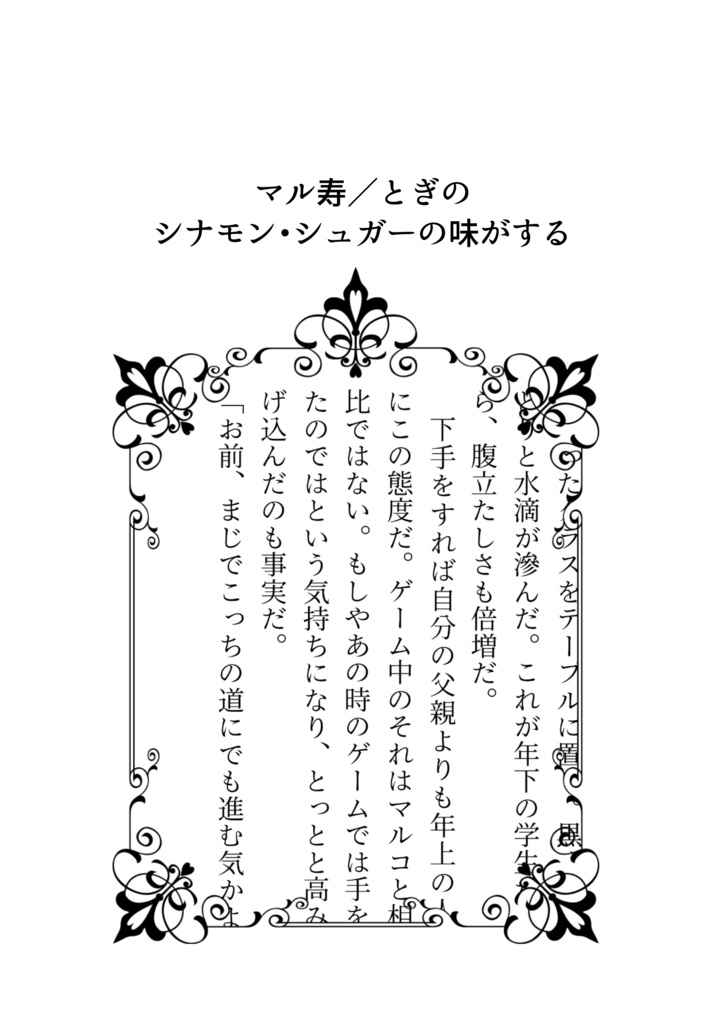 マル寿／とぎの
シナモン・シュガーの味がする
ったグラスをテーブルに置
りと水滴が滲んだ。これが年下の学生
ら、腹立たしさも倍増だ。
下手をすれば自分の父親よりも年上の
にこの態度だ。ゲーム中のそれはマルコと相
比ではない。もしやあの時のゲームでは手を
たのではという気持ちになり、とっとと高み
げ込んだのも事実だ。
「お前、まじでこっちの道にでも進む気かよ